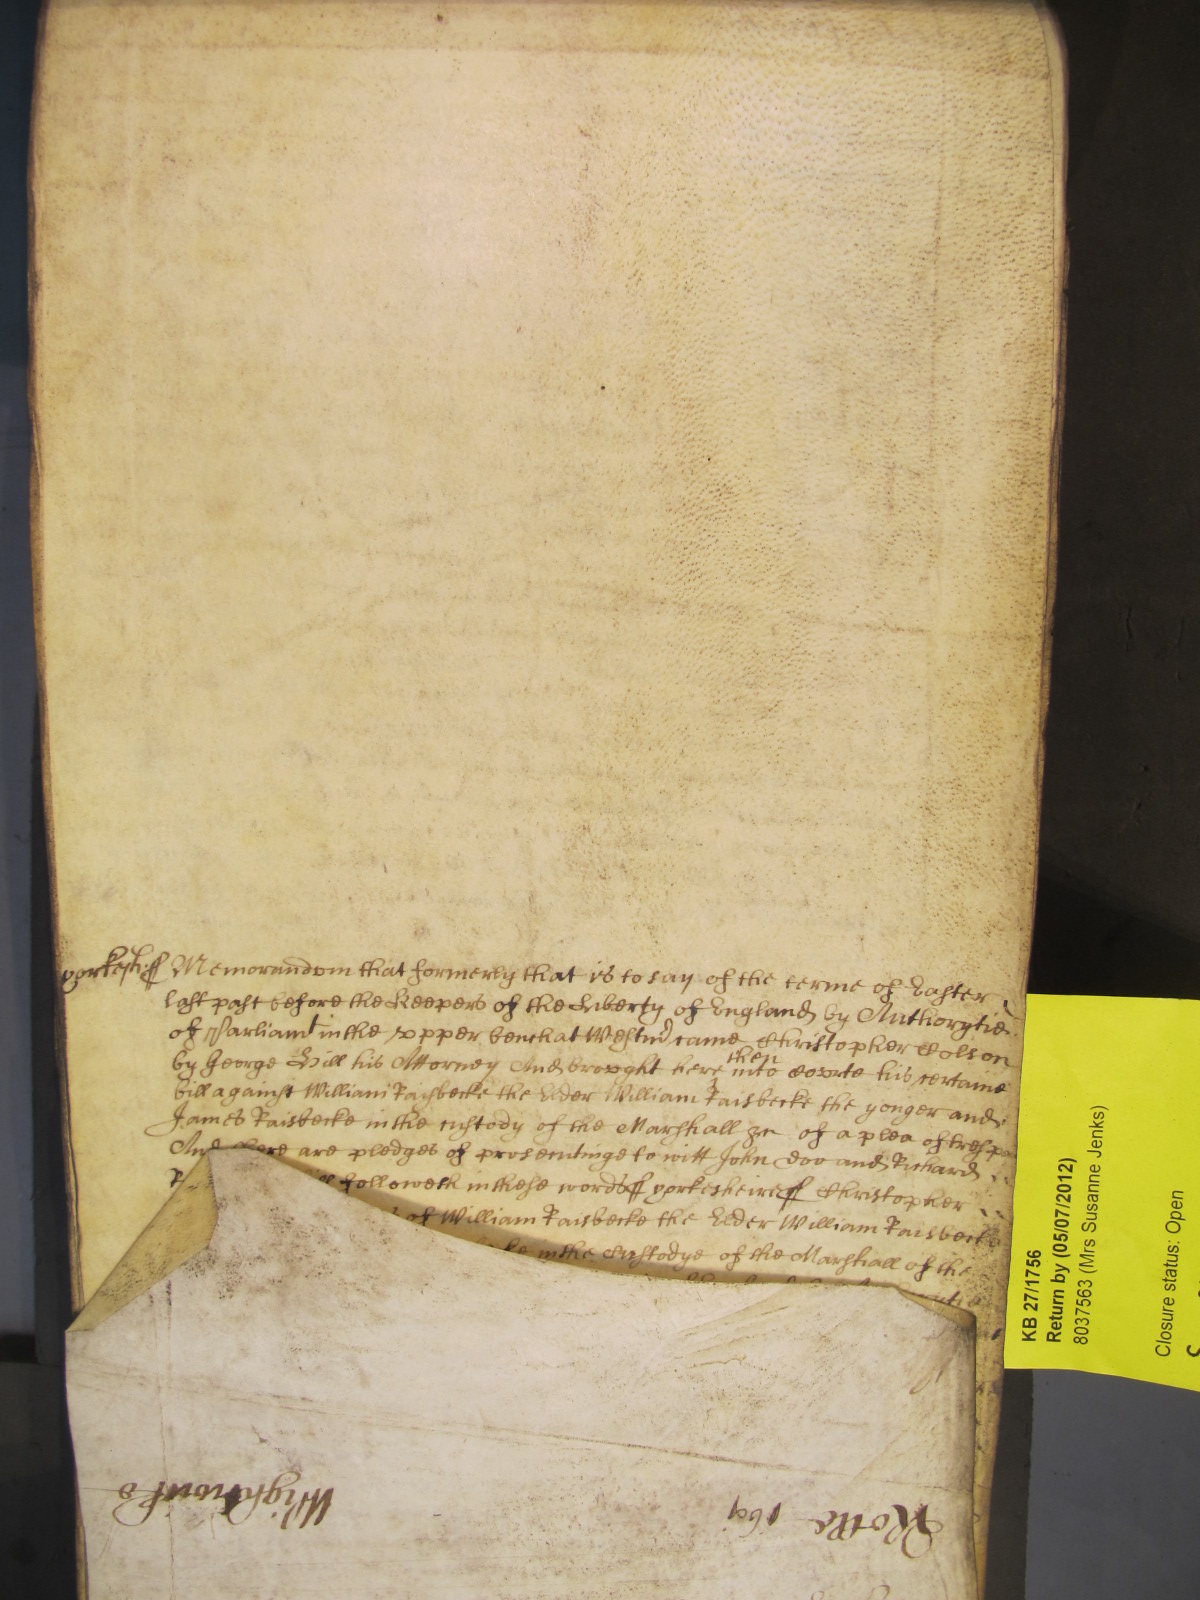 yorkesh: ss Memorandum that formerly that is to say of the terme of Easter
last past before the Keepers of the Liberty of England by Authorytie
of Parliamt in the vpper bench at Westmr came Christopher Colson
by George Gill his Attorney And brought here then into Courte his certaine
bill against William Raisbecke the Elder William Raisbecke the yonger and
James Raisbecke in the custody of the Marshall &c of a plea of tresp
And there are pledges of prosecutinge to witt John Doo and Richard
followeth in these words ss yorkesheire ss Christopher
of William Raisbecke the Elder William Raisbecke
in the Custodye of the Marshall of the
Rolle 169
Wightwick
KB 27/1756
Return by (05/07/2012)
8037563 (Mrs Susanne Jenks)
Closure status: Open